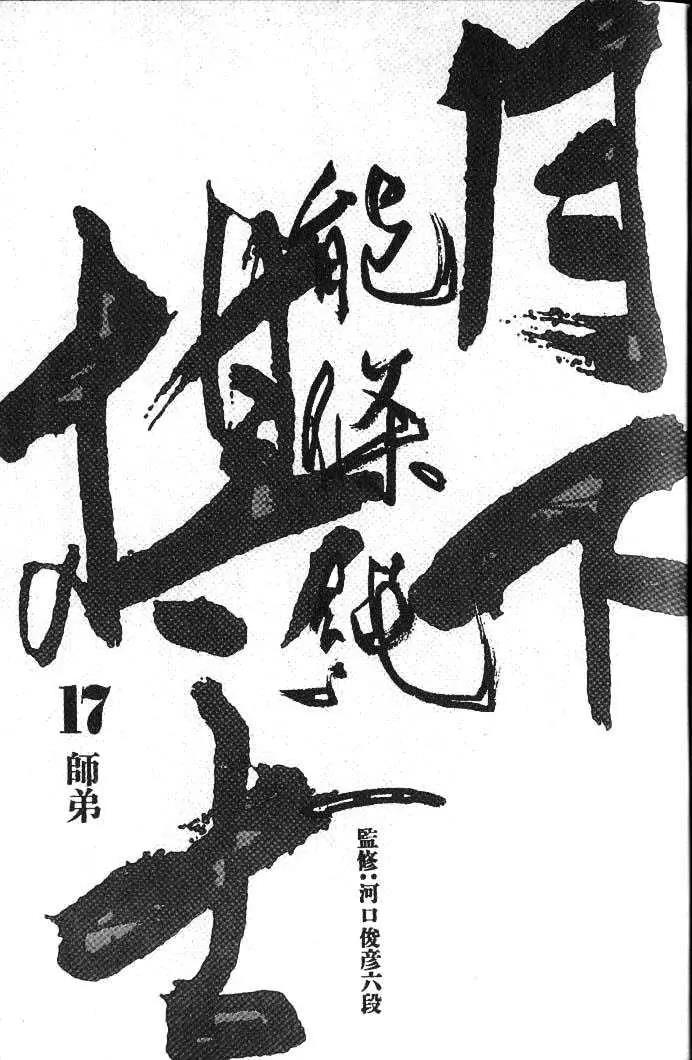 月下
棋士
能條純一
17
師弟
監修:河口俊彦六段